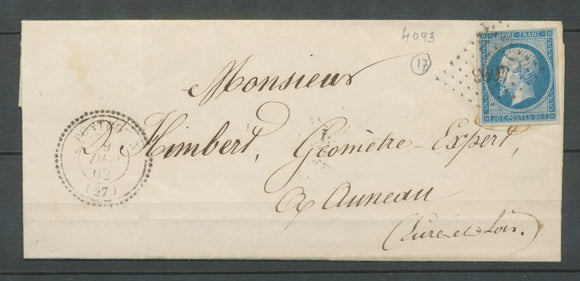 4093
17
EMPIRE FRANC
20 C POSTES 20 C
Monsieur
Himbert, Géomètre-Expert,
à Auneau
(Eure-et-Loir.)
9
62
(27)